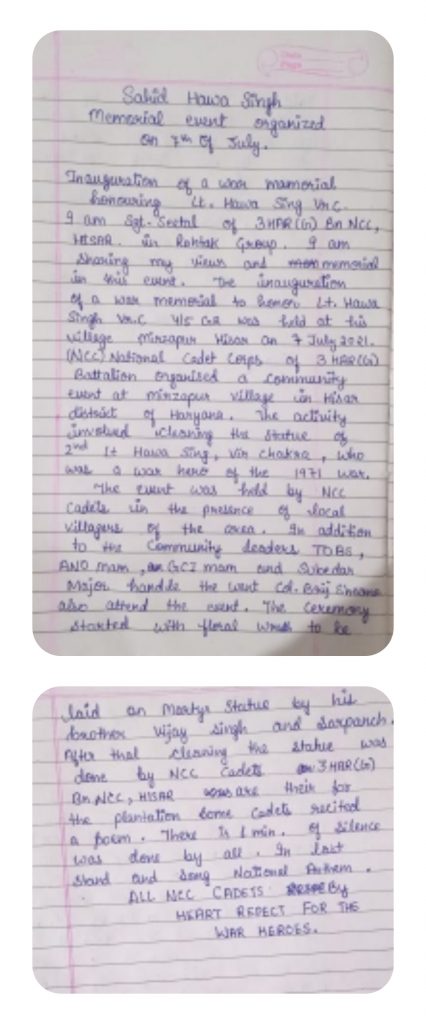 Date
Page
Sahid Hawa Singh
Memorial event organized
on 7th of July.
Inauguration of a war mamorial
honouring Lt. Hawa Sing Vr.C.
9 am Sgt. Sectal of 3HAR(G) Bn NCC,
HISAR. in Rohtak Group. 9 am
sharing my views and memorial
in this event. The inauguration
of a war memorial to honor Lt. Hawa
Singh Vr.C 4/5 G.R was held at his
village mirzapur Hisar on 7 July 2021.
(NCC) National Cadet Corps of 3 HAR(G)
Battalion organised a community
event at mirzapur village in Hisar
district of Haryana. The activity
involved cleaning the statue of
2nd Lt Hawa Sing, Vir chakra, who
was a war hero of the 1971 war.
The event was held by NCC
Cadets in the presence of local
villagers of the area. In addition
to the Community leaders TOBS,
ANO mam, GCI mam and Subedar
Major handle the went Col. Brij
also attend the event. The Ceremony
started with floral to be
laid on Martyr Statue by his
brother Vijay Singh and Sarpanch.
After that cleaning the statue was
done by NCC Cadets 3HAR(G)
Bn NCC, HISAR are their for
the plantation Some Cadets recited
a poem. There is 1 min. of silence
was done by all. In last
stand and song National Anthem.
ALL NCC CADETS By
HEART REPECT FOR THE
WAR HEROES.